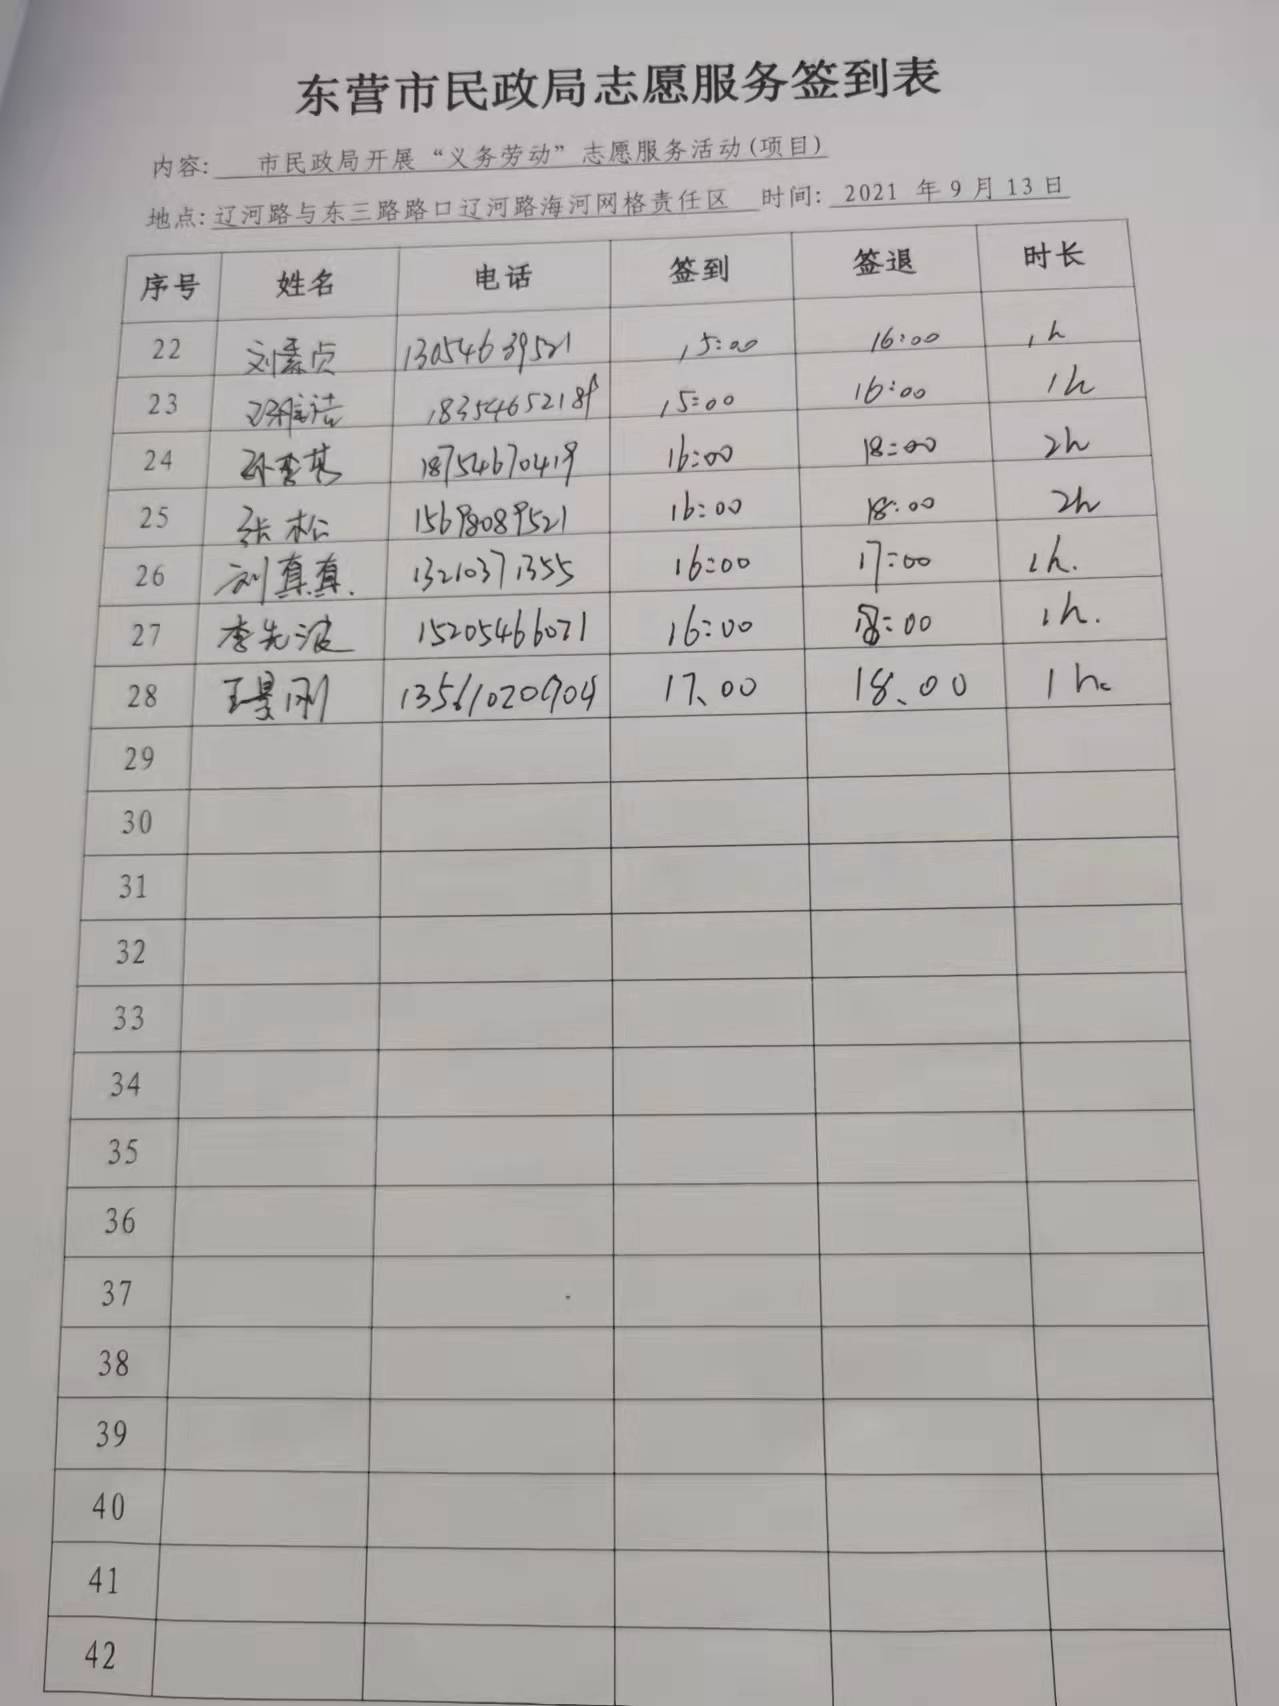 东营市民政局志愿服务签到表
内容: 市民政局开展“义务劳动”志愿服务活动(项目)
地点:辽河路与东三路路口辽河路海河网格责任区 时间: 2021 年9月13日
序号 姓名 电话 签到 签退 时长
22 刘素贞 13054639521 15:00 16:00 1h
23 15:00 16:00 1h
24 18754670419 16:00 18:00 2h
25 张松 15698089521 16:00 18:00 2h
26 刘真真. 13210371355 16:00 17:00 1h.
27 李先波 15205466071 16:00 :00 1h.
28 王景刚 13561020904 17、00 18、00 1h.
29
30
31
32
33
34
35
36
37
38
39
40
41
42